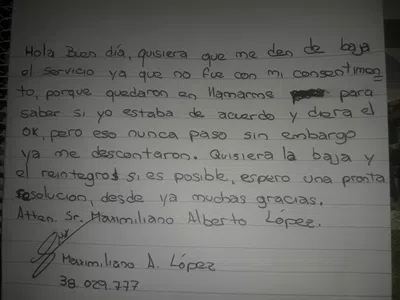 Hola Buen día, quisiera que me den de baja
el servicio ya que no fue con mi consentimien
to, porque quedaron en llamarme para
saber si yo estaba de acuerdo y diera el
OK, pero eso nunca paso sin embargo
ya me descontaron. Quisiera la baja y
el reintegros si es posible, espero una pronta
resolucion, desde ya muchas gracias.
Atten. Sr. Maximiliano Alberto López.
Maximiliano A. López
38.029.777